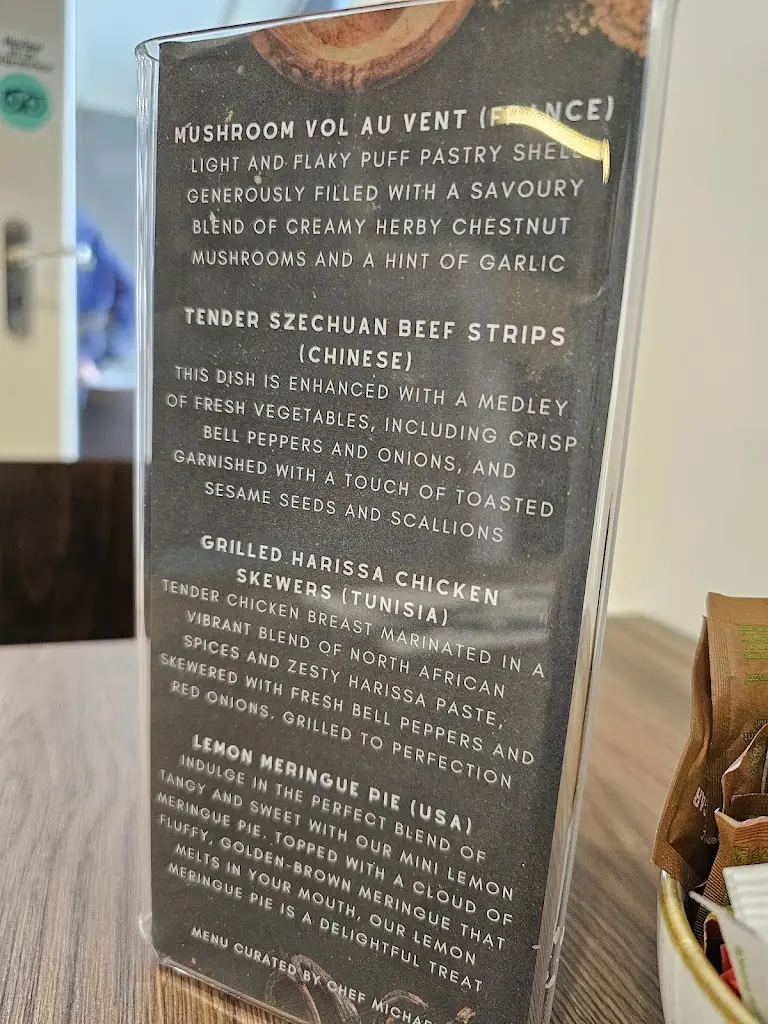 MUSHROOM VOL AU VENT (FRANCE)
LIGHT AND FLAKY PUFF PASTRY SHELL
GENEROUSLY FILLED WITH A SAVOURY
BLEND OF CREAMY HERBY CHESTNUT
MUSHROOMS AND A HINT OF GARLIC
TENDER SZECHUAN BEEF STRIPS
(CHINESE)
THIS DISH IS ENHANCED WITH A MEDLEY
OF FRESH VEGETABLES, INCLUDING CRISP
BELL PEPPERS AND ONIONS, AND
GARNISHED WITH A TOUCH OF TOASTED
SESAME SEEDS AND SCALLIONS
GRILLED HARISSA CHICKEN
SKEWERS (TUNISIA)
TENDER CHICKEN BREAST MARINATED IN A
VIBRANT BLEND OF NORTH AFRICAN
SPICES AND ZESTY HARISSA PASTE,
SKEWERED WITH FRESH BELL PEPPERS AND
RED ONIONS. GRILLED TO PERFECTION
LEMON MERINGUE PIE (USA)
INDULGE IN THE PERFECT BLEND OF
TANGY AND SWEET WITH OUR MINI LEMON
MERINGUE PIE. TOPPED WITH A CLOUD OF
FLUFFY, GOLDEN-BROWN MERINGUE THAT
MELTS IN YOUR MOUTH, OUR LEMON
MERINGUE PIE IS A DELIGHTFUL TREAT
MENU CURATED BY CHEF MICHAE